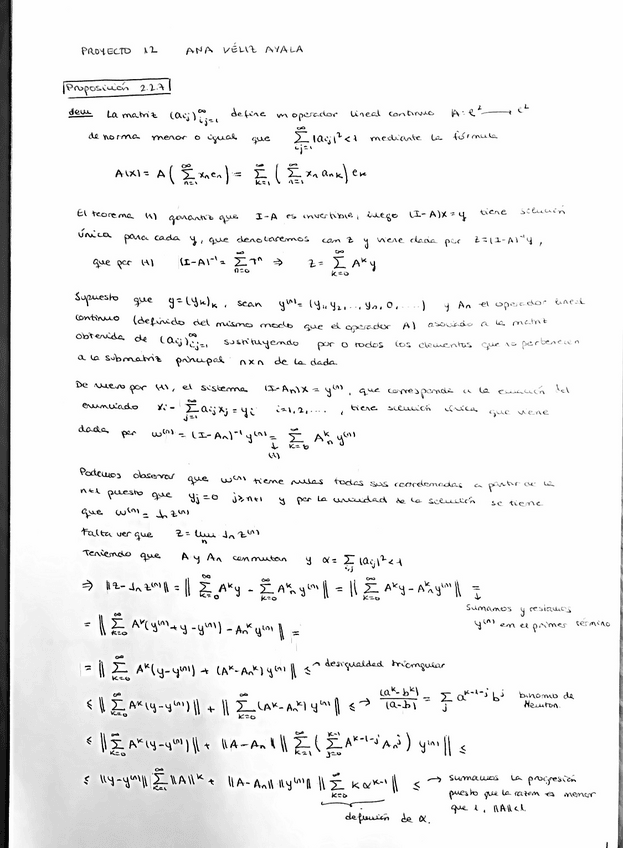 PROYECTO 12 ANA VÉLIZ AYALA
Proposición 2.2.7
dem La matriz (aij)∞i,j=1 define un operador lineal continuo A: ℓ² → ℓ²
de norma menor o igual que ∞Σi,j=1 |aij|² < 1 mediante la fórmula
A(x) = A( ∞Σn=1 xn en ) = ∞Σk=1 ( ∞Σn=1 xn ank ) ek
El teorema (1) garantiza que I-A es invertible, luego (I-A)x = y tiene solución
única para cada y, que denotaremos con z y viene dada por z = (I-A)⁻¹y,
que por (1) (I-A)⁻¹ = ∞Σn=0 Tⁿ ⇒ z = ∞Σk=0 Aᵏy
Supuesto que y = (yk)k, sean y⁽ⁿ⁾ = (y1, y2, ..., yn, 0, ...) y An el operador lineal
continuo (definido del mismo modo que el operador A) asociado a la matriz
obtenida de (aij)∞i,j=1 sustituyendo por 0 todos los elementos que no pertenecen
a la submatriz principal n×n de la dada.
De nuevo por (1), el sistema (I-An)x = y⁽ⁿ⁾, que corresponde a la ecuación del
enunciado xi - ∞Σj=1 aij xj = yi i=1,2,..., tiene solución única que viene
dada por w⁽ⁿ⁾ = (I-An)⁻¹ y⁽ⁿ⁾ = ∞Σk=0 Aₙᵏ y⁽ⁿ⁾
↓
(1)
Podemos observar que w⁽ⁿ⁾ tiene nulas todas sus coordenadas a partir de la
n+1 puesto que yj = 0 j≥n+1 y por la unicidad de la solución se tiene
que w⁽ⁿ⁾ = Jn z⁽ⁿ⁾
Falta ver que z = limn Jn z⁽ⁿ⁾
Teniendo que A y An conmutan y α = Σi,j |aij|² < 1
⇒ ‖z - Jn z⁽ⁿ⁾‖ = ‖ ∞Σk=0 Aᵏy - ∞Σk=0 Aₙᵏ y⁽ⁿ⁾ ‖ = ‖ ∞Σk=0 Aᵏy - Aₙᵏ y⁽ⁿ⁾ ‖ =
↓
Sumamos y restamos
y⁽ⁿ⁾ en el primer término
= ‖ ∞Σk=0 Aᵏ(y⁽ⁿ⁾ + y - y⁽ⁿ⁾) - Aₙᵏ y⁽ⁿ⁾ ‖ =
= ‖ ∞Σk=0 Aᵏ(y - y⁽ⁿ⁾) + (Aᵏ - Aₙᵏ) y⁽ⁿ⁾ ‖ ≤ → desigualdad triangular
≤ ‖ ∞Σk=0 Aᵏ(y - y⁽ⁿ⁾) ‖ + ‖ ∞Σk=0 (Aᵏ - Aₙᵏ) y⁽ⁿ⁾ ‖ ≤ → (aᵏ - bᵏ)/(a - b) = Σj aᵏ⁻¹⁻ʲ bʲ binomio de
Newton.
≤ ‖ ∞Σk=0 Aᵏ(y - y⁽ⁿ⁾) ‖ + ‖A - An‖ ‖ ∞Σk=1 ( k-1Σj=0 Aᵏ⁻¹⁻ʲ Aₙʲ ) y⁽ⁿ⁾ ‖ ≤
≤ ‖y - y⁽ⁿ⁾‖ ∞Σk=1 ‖A‖ᵏ + ‖A - An‖ ‖y⁽ⁿ⁾‖ ‖ ∞Σk=0 k αᵏ⁻¹ ‖ ≤ → sumamos la progresión
puesto que la razón es menor
que 1, ‖A‖<1
definición de α.